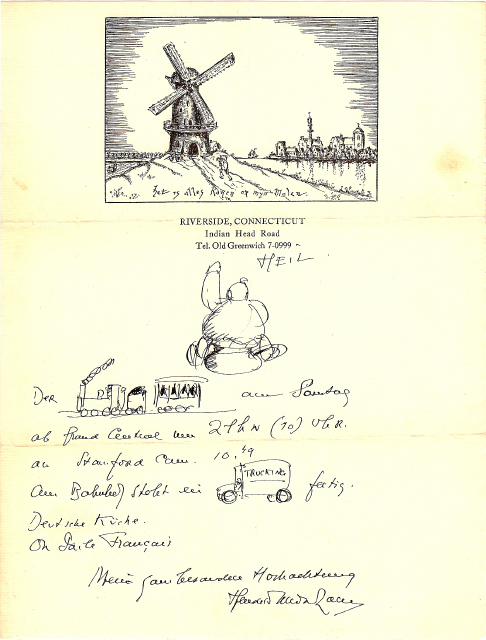 Het is alles Koren op mijn Molen.
RIVERSIDE, CONNECTICUT
Indian Head Road
Tel. Old Greenwich 7-0999
HEIL
Der am Sontag
ab Grand Central um 21hn (10) UHR.
an Stamford Conn. 10.49
TRUCKING
Am Bahnhof steht ein fertig.
Deutsche Küche.
On Parle Français
Meine ganz besondere Hochachtung
Hendrik Willem van Loon